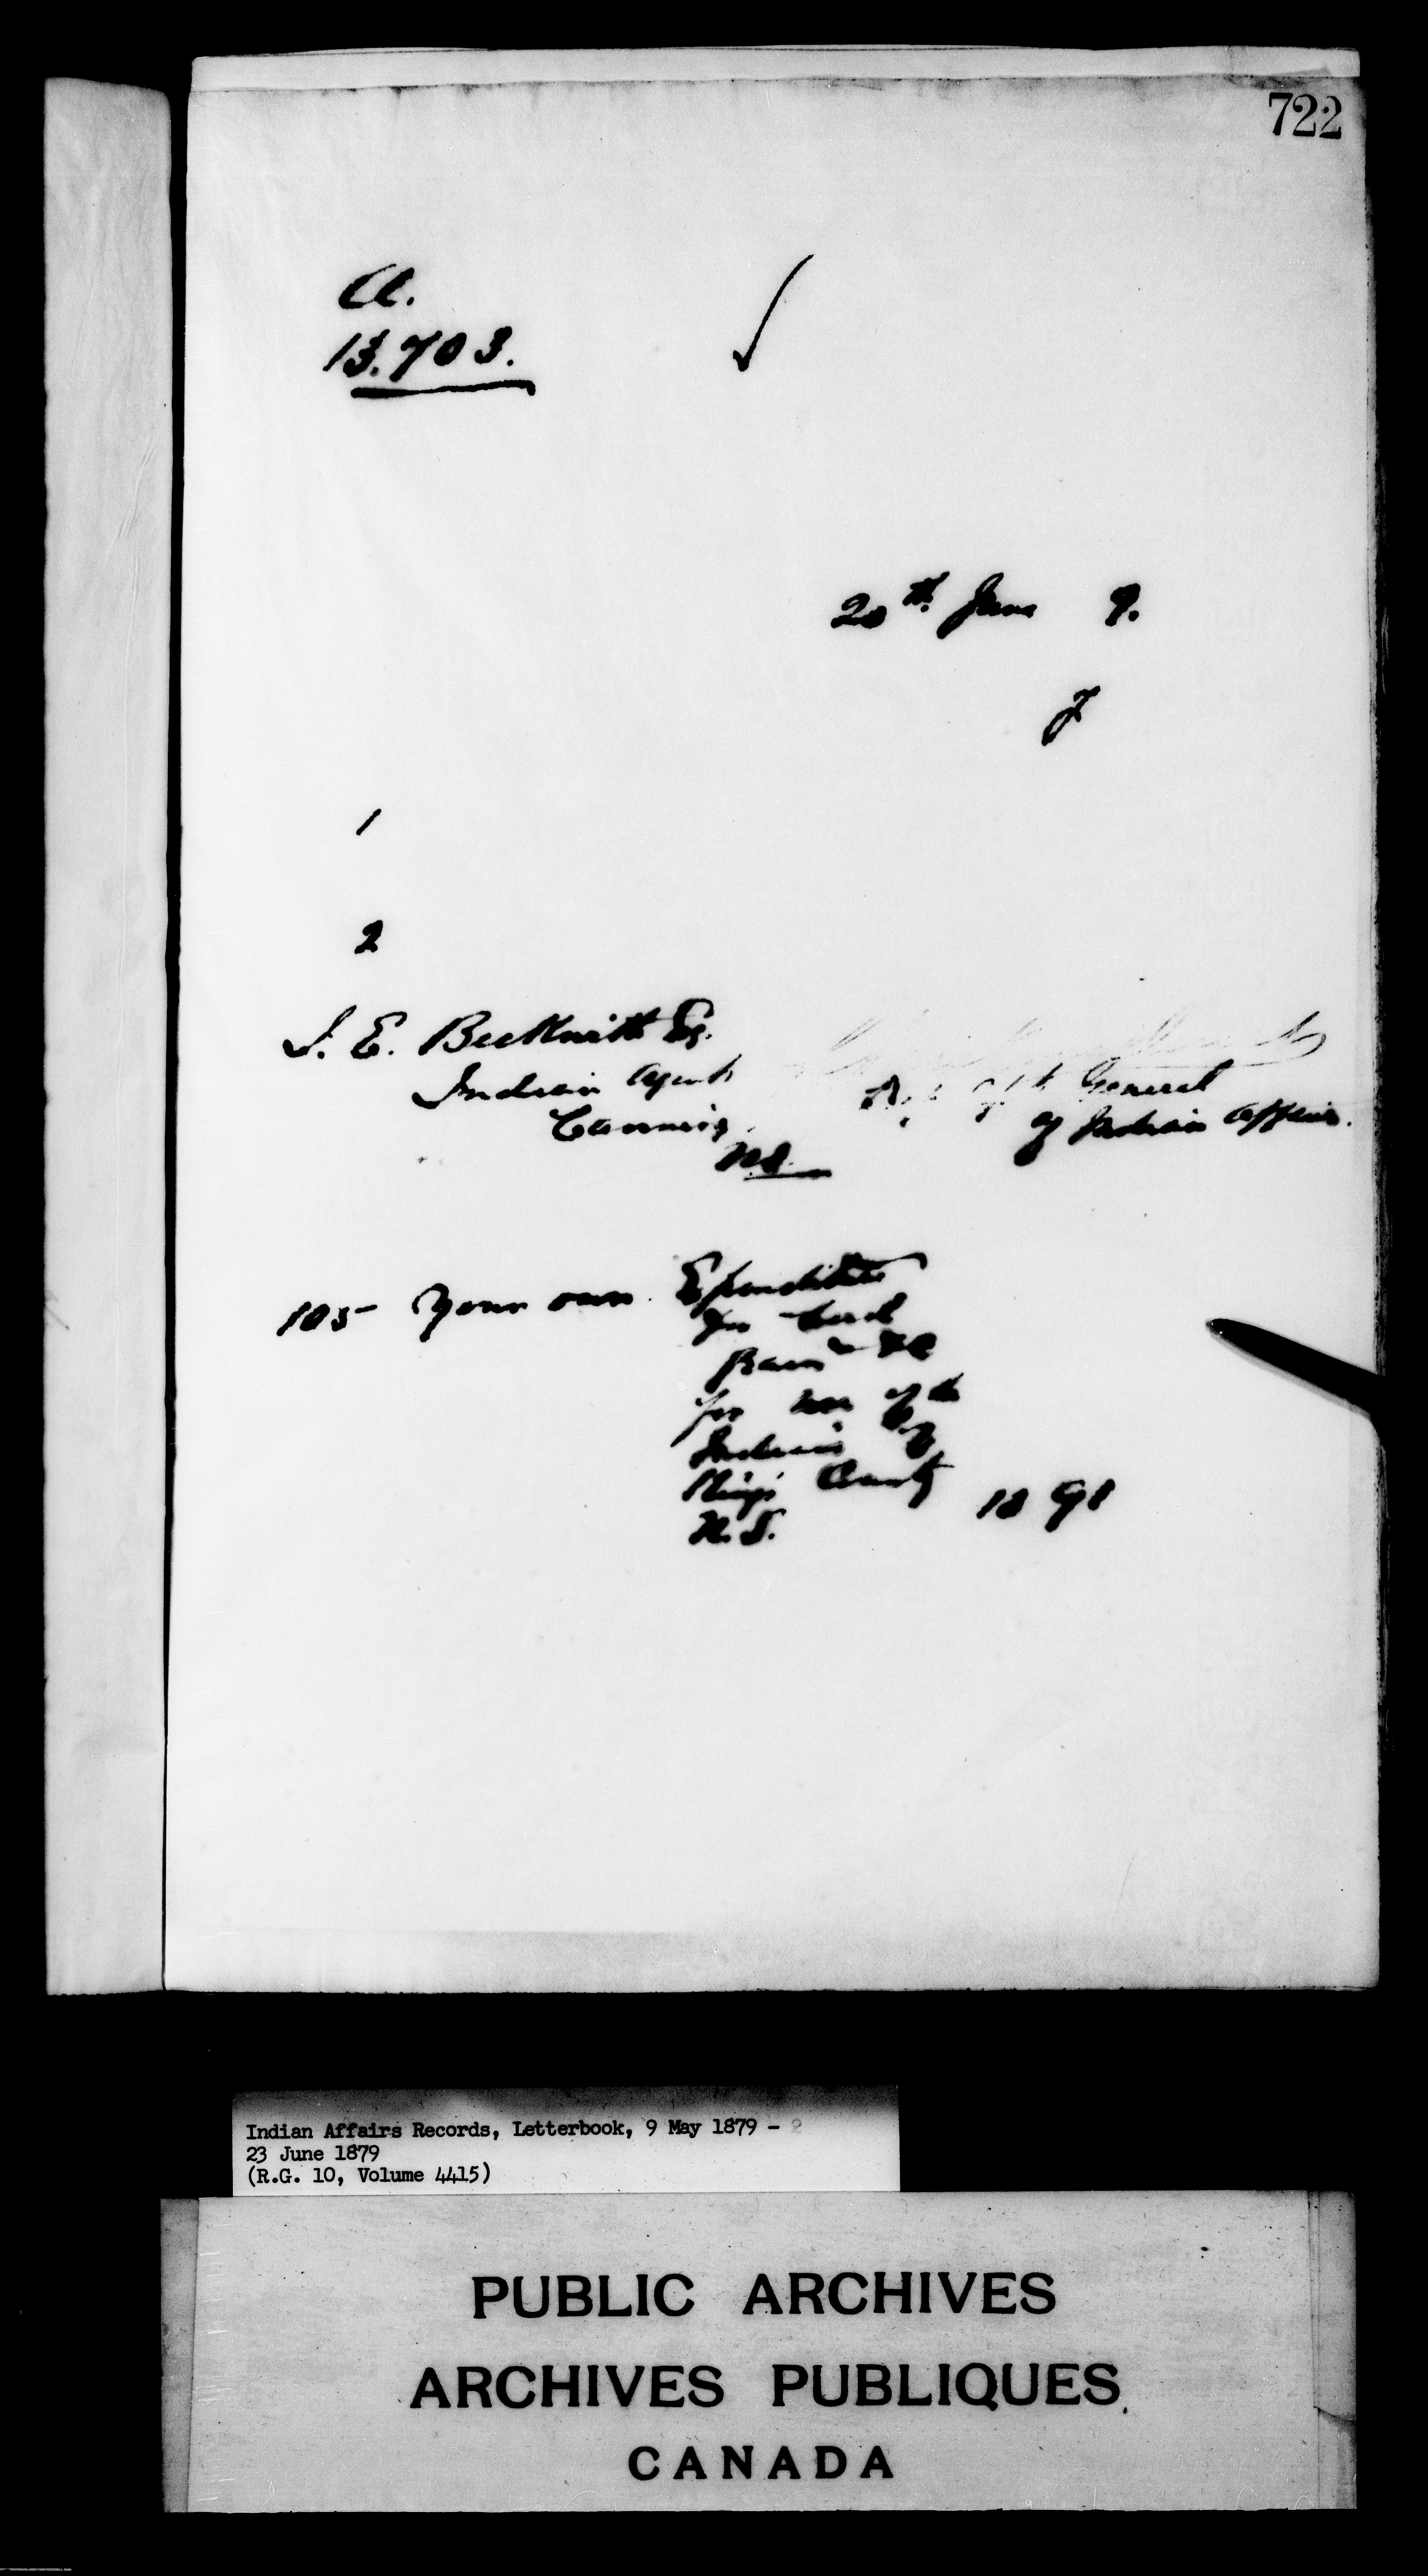 722
A.
13.703.
20th June 9.
J
1
2
J. E. Beckwith Esq.
Indian Agent
Canning
N.S.
General
of Indian Affairs.
105 Your own Expenditure
for Seed
for use of the
Indians of
Kings County 18 91
N.S.
Indian Affairs Records, Letterbook, 9 May 1879 - 2
23 June 1879
(R.G. 10, Volume 4415)
PUBLIC ARCHIVES
ARCHIVES PUBLIQUES
CANADA